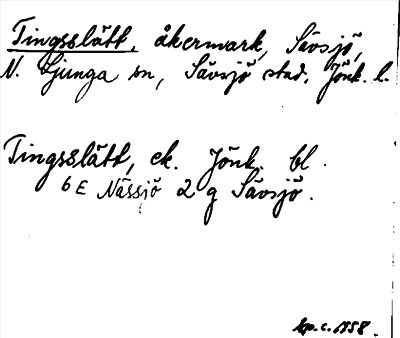 Tingsslätt, åkermark, Sävsjö,
N. Ljunga sn, Sävsjö stad, Jönk. l.
Tingsslätt, ek. Jönk. bl.
6 E Nässjö 2 g Sävsjö.
Ep. c. 1958.